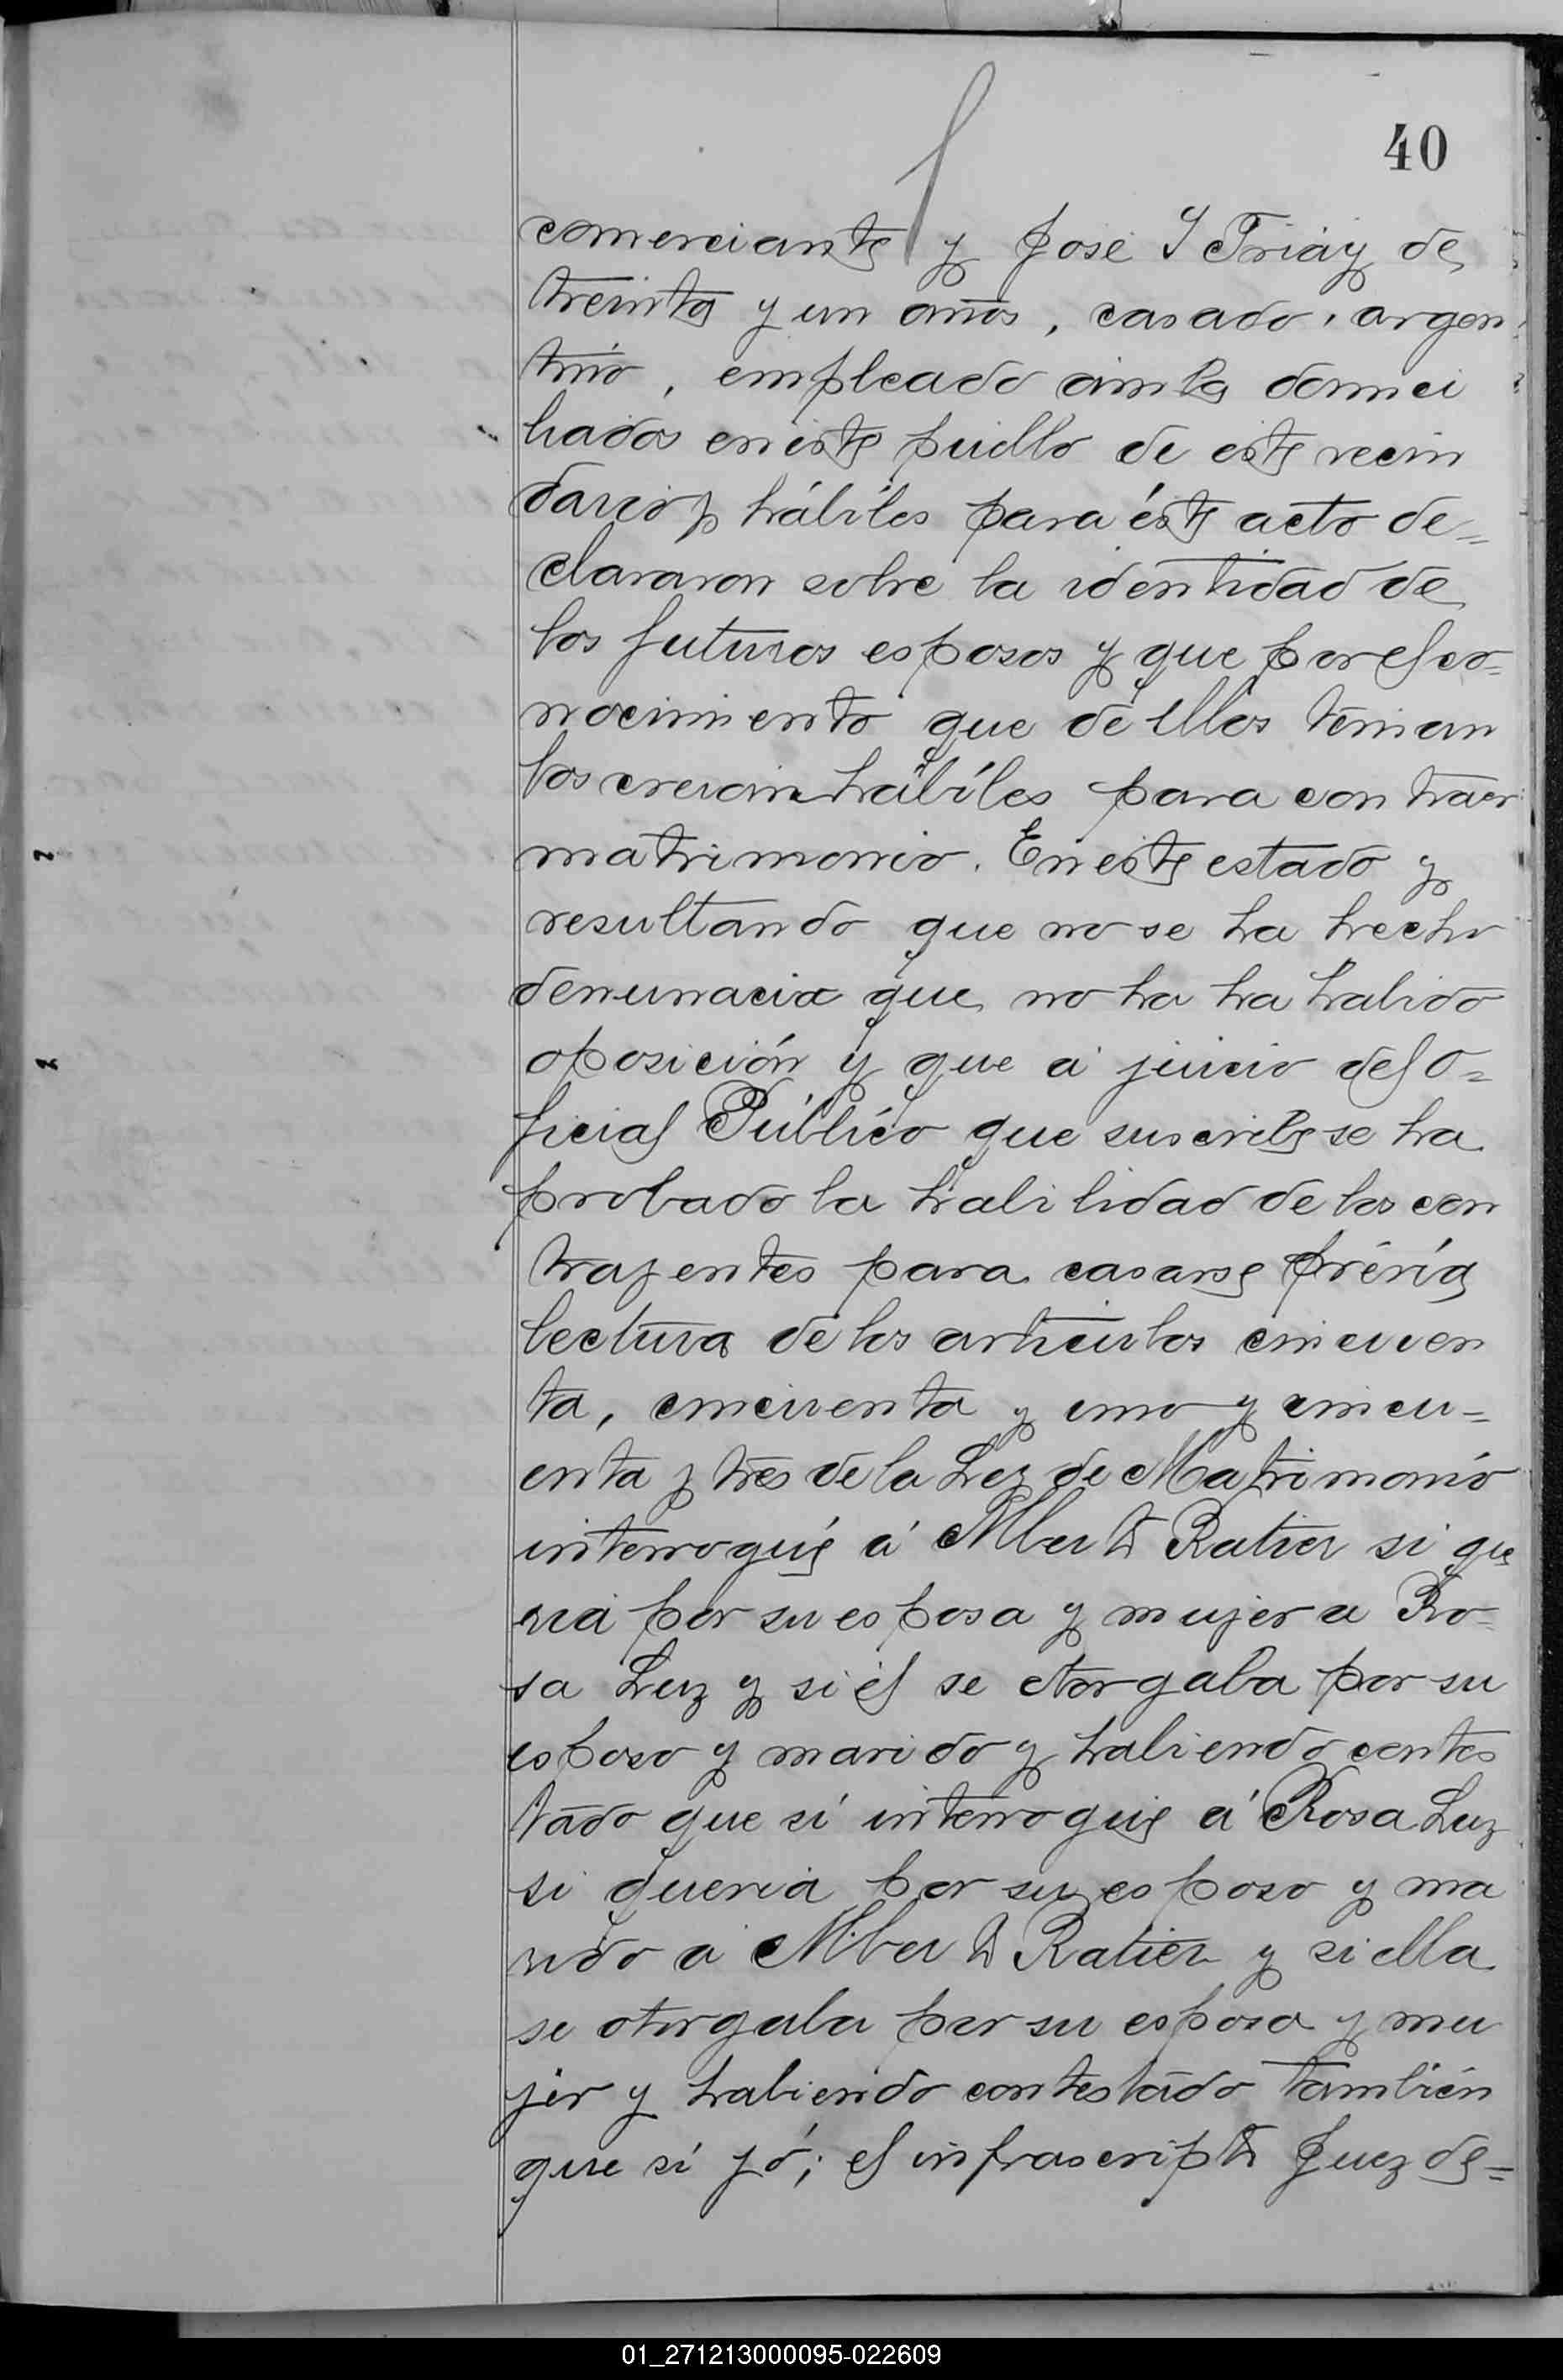 40
comerciante y José I Triay de
treinta y un años, casado, argen
tino, empleado ambos domici
liados en este pueblo de este vecin
dario y hábiles para éste acto de=
clararon sobre la identidad de
los futuros esposos y que por el co=
nocimiento que de ellos tenian
los creian hábiles para contraer
matrimonio. En este estado y
resultando que no se ha hecho
denunacia que no ha ha habido
oposición y que a juicio del O=
ficial Público que suscribe se ha
probado la habilidad de los con
trayentes para casarse prévia
lectura de los articulos cincuen
ta, cincuenta y uno y cincu=
enta y tres de la Ley de Matrimonio
interrogué á Alberto Ratier si que
ria por su esposa y mujer a Ro=
sa Luz y si él se otorgaba por su
esposo y marido y habiendo contes
tado que sí interrogué á Rosa Luz
si queria por su esposo y ma
rido a Alberto Ratier y si ella
se otorgaba por su esposa y mu
jer y habiendo contestado también
que sí yó; el infrascripto Juez de=
01_271213000095-022609